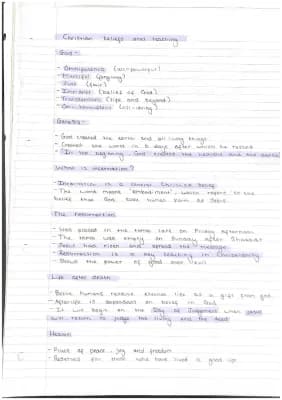 Christian beliefs and teaching
God -
- Omnipotence (all-powerful)
- Merciful (forgiving)
- Just (fair)
- (belief of God)
- Transcendent (life and beyond)
(all-loving)
Genesis -
- God created the earth and all living things
- Created the world in 6 days after which he rested
- In the beginning God created the heavens and the earth
What is incarnation?
- Incarnation is a Christian belief
- The word means which refers to the
belief that God took human form as Jesus.
The Resurrection
- Was placed in the tomb late on Friday afternoon
- The tomb was empty on Sunday after
- Jesus had risen and spread the message
- Resurrection is a key teaching in Christianity
- Shows the power of good over evil
Life after death
- Believe humans receive eternal life as a gift from god.
- Afterlife is dependant on belief in God
- It will begin on the Day of Judgement when Jesus
will return to judge the living and the dead
Heaven
- Place of peace, joy and freedom
- Reserved for those who have lived a good life